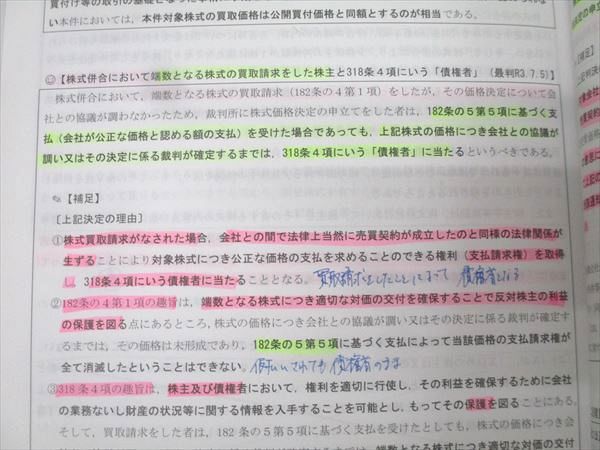 買付け等の取引の基礎となった事情に
い本件においては、本件対象株式の買取価格は公開買付価格と同額とするのが相当である。
☺【株式併合において端数となる株式の買取請求をした株主と318条4項にいう「債権者」（最判R3.7.5）】
株式併合において、端数となる株式の買取請求（182条の4第1項）をしたが、その価格決定について会
社との協議が調わなかったため、裁判所に株式価格決定の申立てをした者は、182条の5第5項に基づく支
払（会社が公正な価格と認める額の支払）を受けた場合であっても、上記株式の価格につき会社との協議が
調い又はその決定に係る裁判が確定するまでは、318条4項にいう「債権者」に当たるというべきである。
✎【補足】
［上記決定の理由］
①株式買取請求がなされた場合、会社との間で法律上当然に売買契約が成立したのと同様の法律関係が
生ずることにより対象株式につき公正な価格の支払を求めることのできる権利（支払請求権）を取得
し、318条4項にいう債権者に当たることとなる。買取請求したことによって債権者となる
②182条の4第1項の趣旨は、端数となる株式につき適切な対価の交付を確保することで反対株主の利益
の保護を図る点にあるところ、株式の価格につき会社との協議が調い又はその決定に係る裁判が確定す
るまでは、その価格は未形成であり、182条の5第5項に基づく支払によって当該価格の支払請求権が
全て消滅したということはできない。仮払いされても債権者のまま
③318条4項の趣旨は、株主及び債権者において、権利を適切に行使し、その利益を確保するために会社
の業務ないし財産の状況等に関する情報を入手することを可能とし、もってその保護を図ることにある。
そして、買取請求をした者は、182条の5第5項に基づく支払を受けたとしても、株式の価格につき会